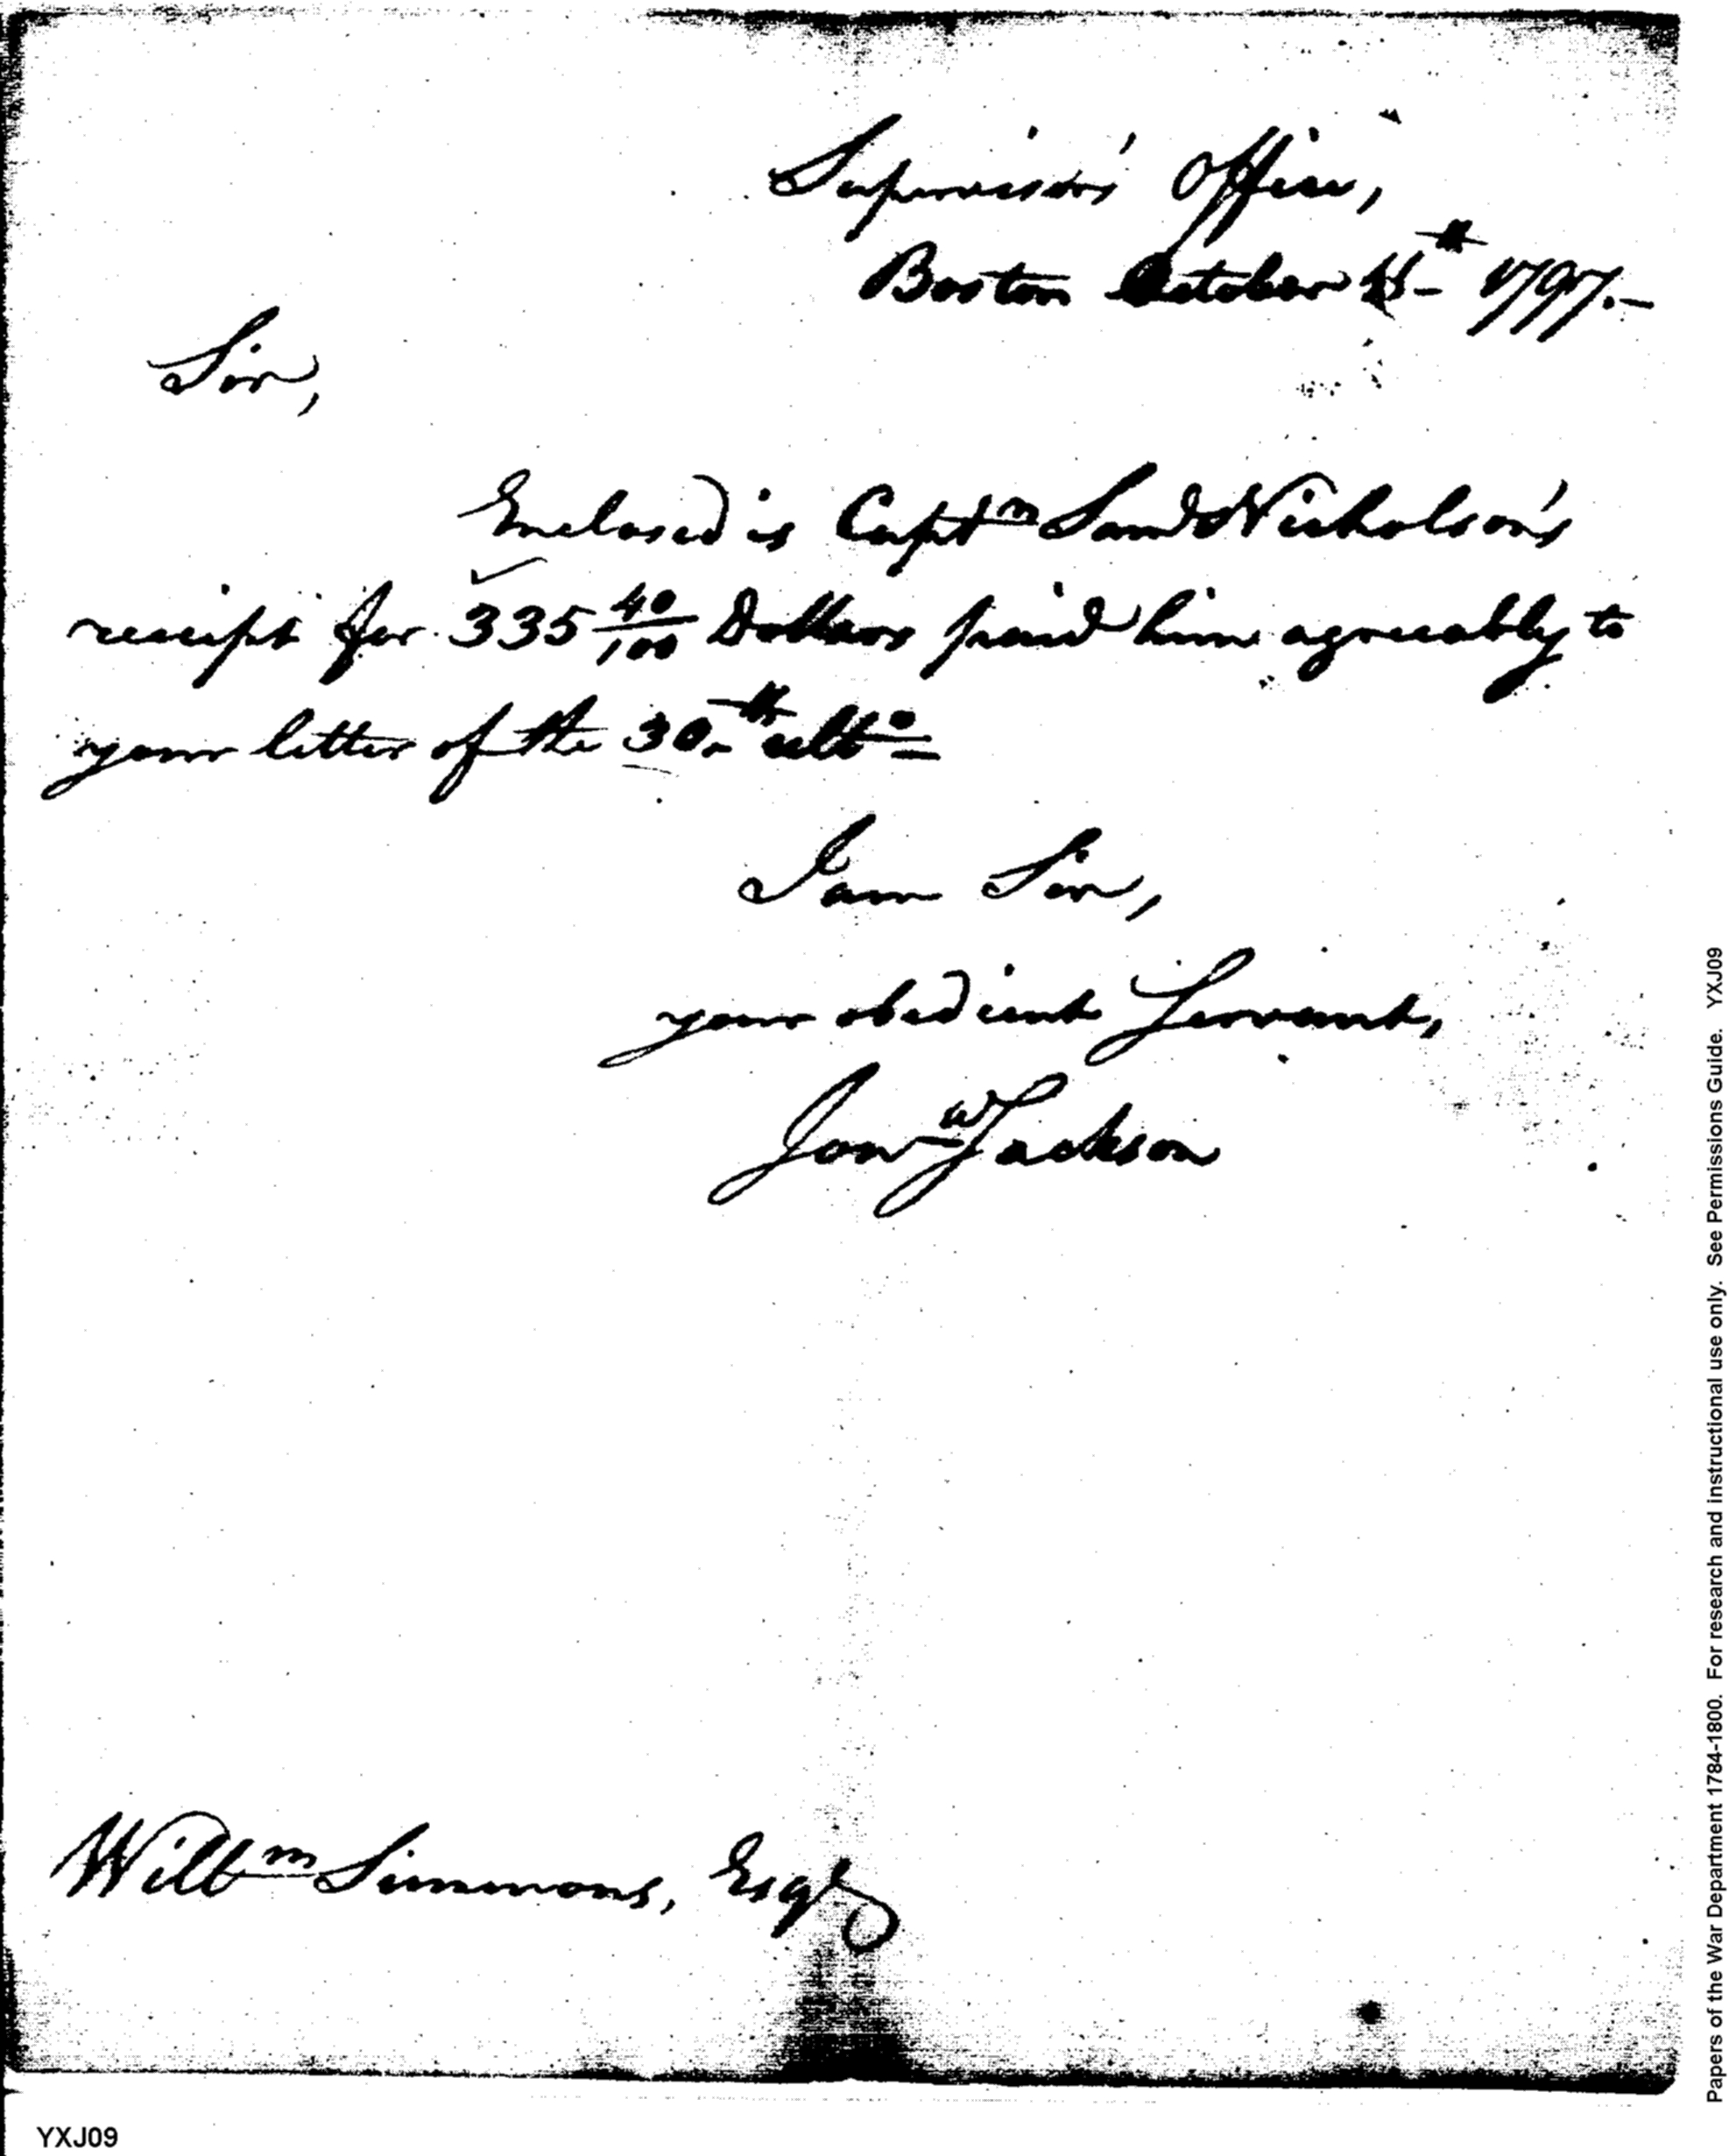 Supervisor's Office,
Boston October 1797.-
Sir,
Enclosed is Captm Saml Nicholson's
receipt for 335 40/100 Dollars paid him agreeably to
your letter of the 30th ulto
I am Sir,
your obedient Servant,
Jona Jackson
Willm Simmons, Esqr
Papers of the War Department 1784-1800. For research and instructional use only. See Permissions Guide. YXJ09
YXJ09